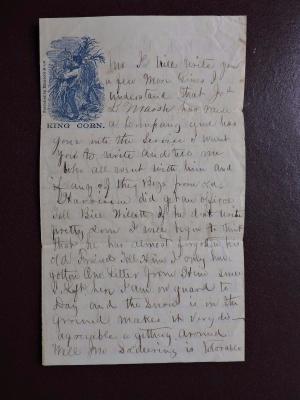 KING CORN.
Mr I Will Write you
a few More Lines I
understand that
L. Marsh has rais
a Company and has
gone into the Service I want
you to write and tell me
who all went with him and
if any of they Boys from
Harrison did get an office
Tell Bill Willett if he dont write
pretty soon I will begin to think
that he has almost forgotten his
old Friends Tell Him I only have
gotten one Letter from Him since
I Left her I am on guard to
day and the Snow is on the
ground makes it very dis-
agreeable a getting around
Well Mr Soldiering is